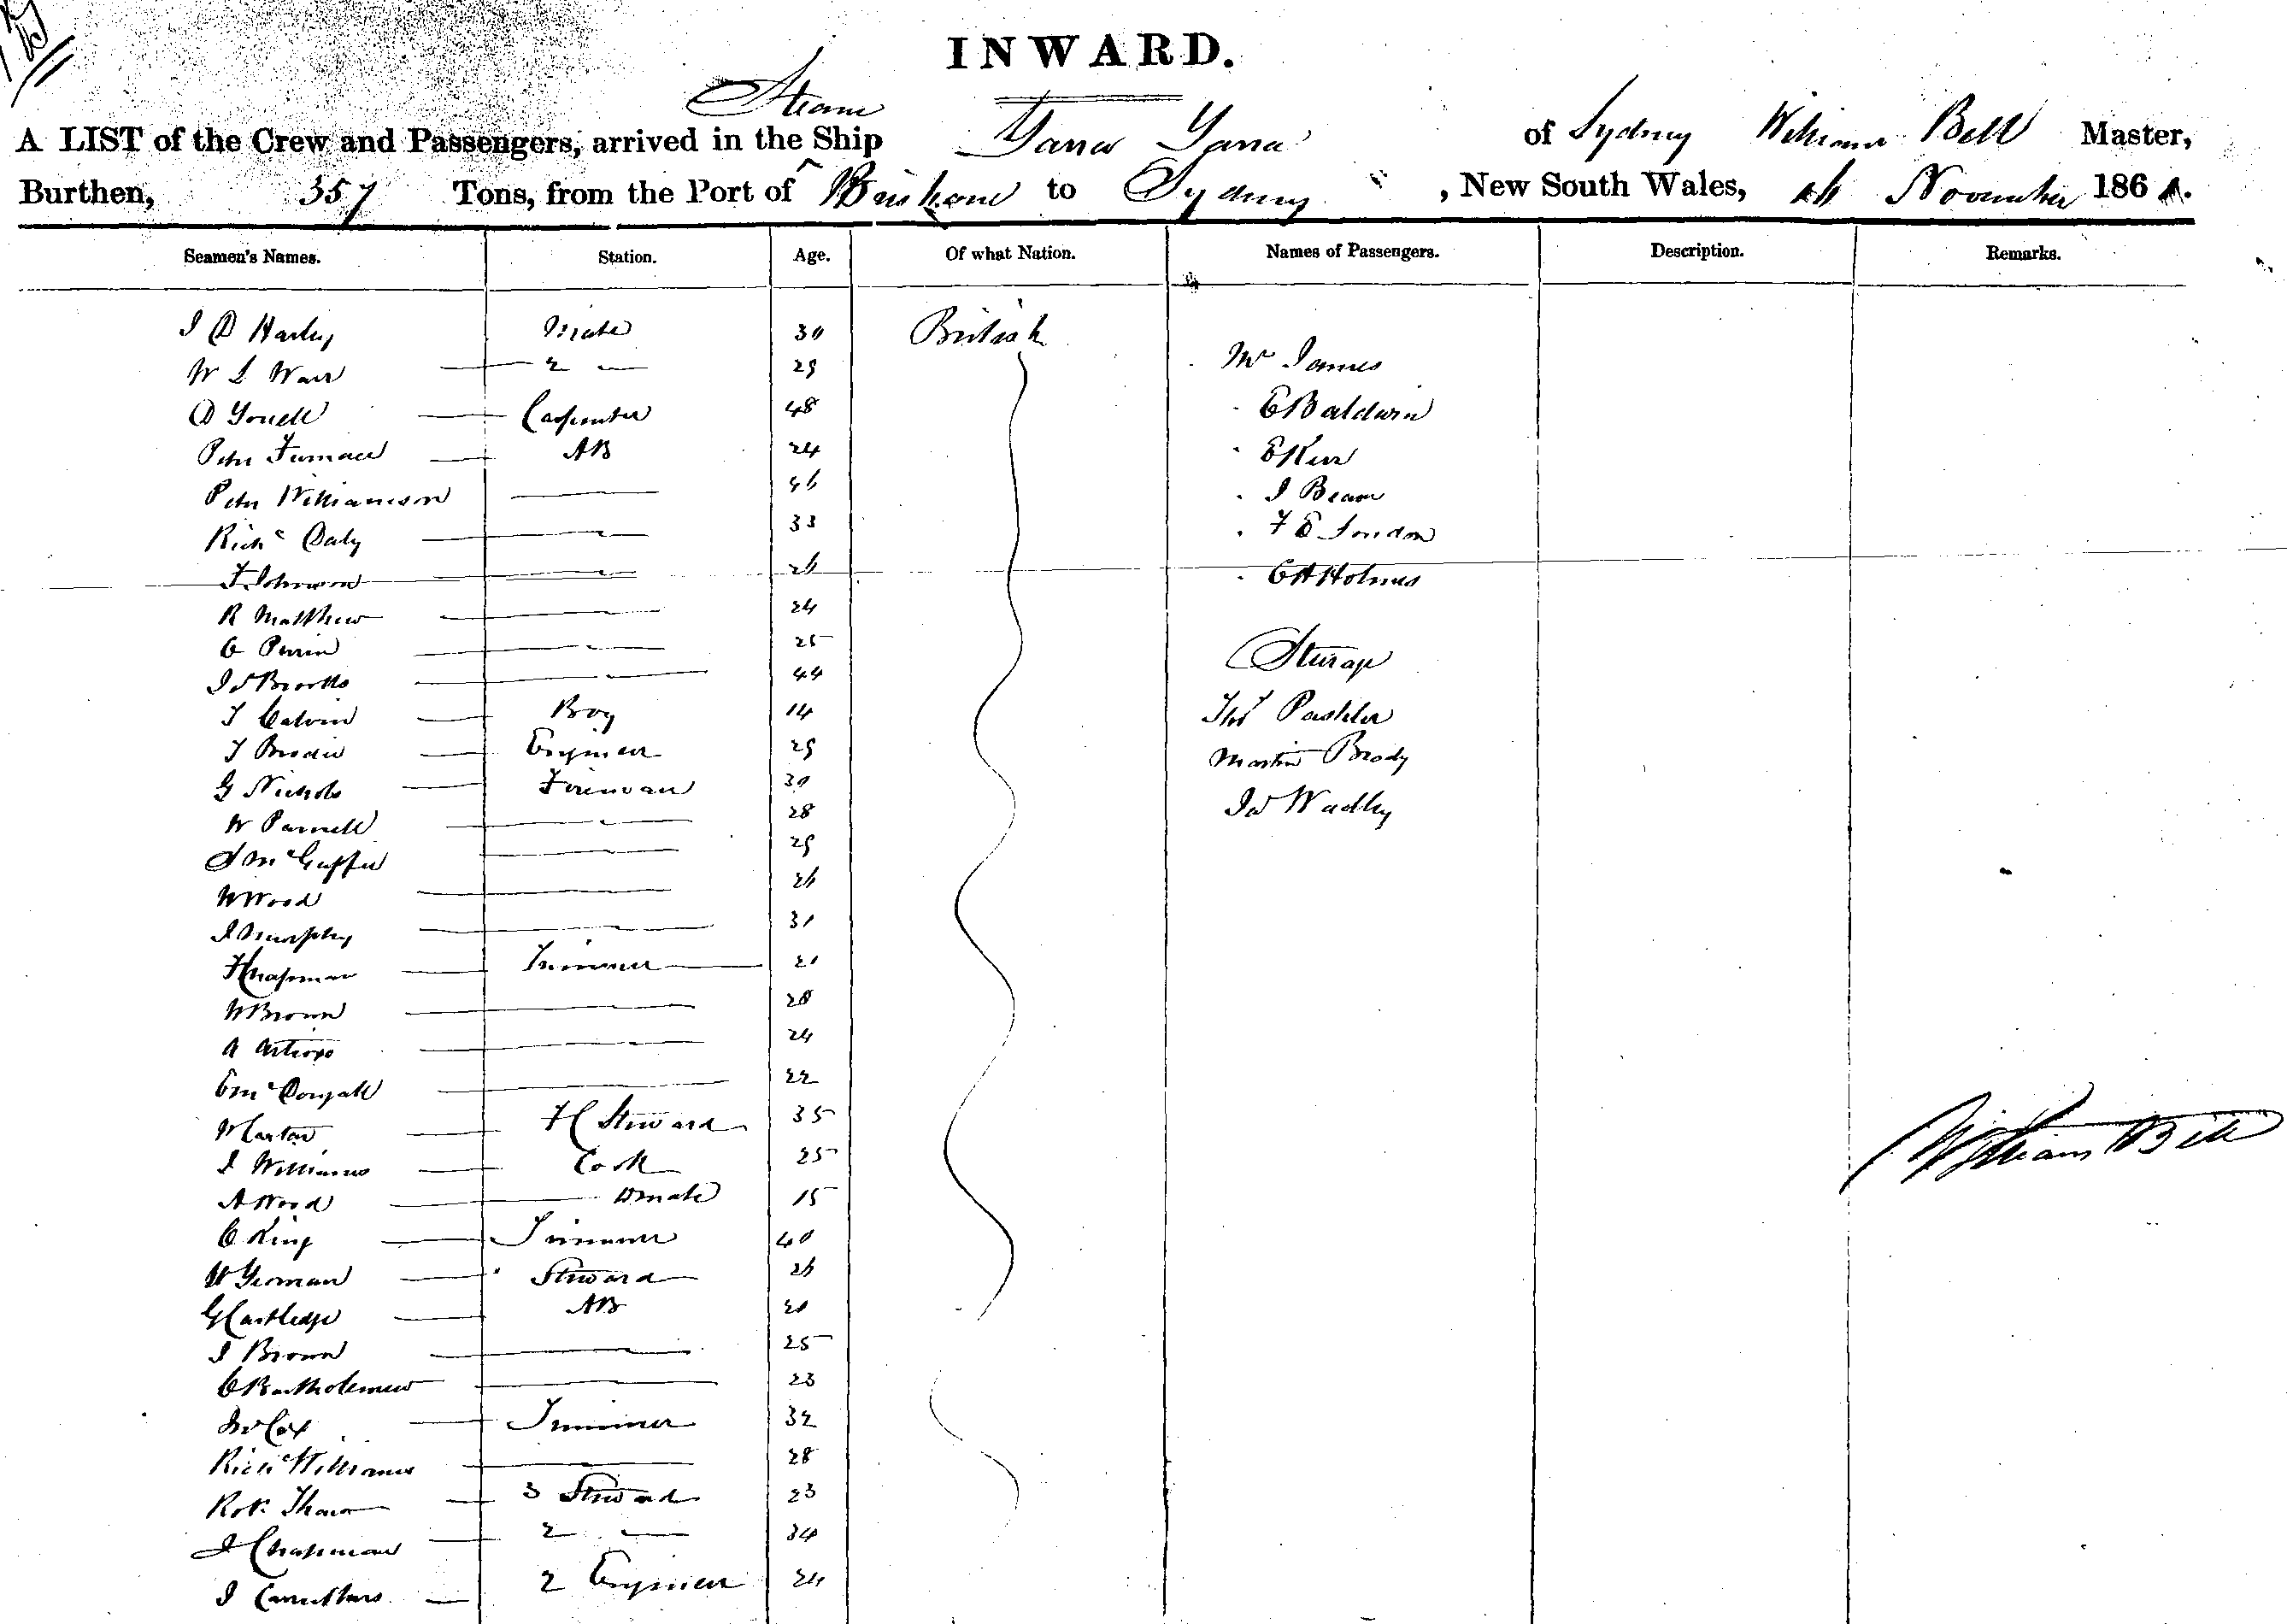 INWARD.
Steam
A LIST of the Crew and Passengers, arrived in the Ship Yarra Yarra of Sydney William Bell Master,
Burthen, 357 Tons, from the Port of Brisbane to Sydney, New South Wales, November 186
Seamen's Names. Station. Age. Of what Nation. Names of Passengers. Description. Remarks.
Mate 30 British
W L Warr 2 29 Mr James
D Youell Carpenter 48 E Baldwin
Peter Furnace AB 24 E Kerr
Peter Williamson 46 J Beam
Richd Daly 33 F E London
T Johnson 26 C H Holmes
R Matthew 24
C Perrin 25 Steerage
Js Brooks 44
T Calvin Boy 14 Thos Pashler
T Brodie Engineer 29 Martin Brody
G Nichols Fireman 30 Js Wadley
W Parnell 28
J McGuffie 29
W Wood 26
J Murphy 31
Chapman Trimmer 21
W Brown 28
A 24
C McDougall 22
W Carter H Steward 35
J Williams Cook 25
A Wood mate 15
C King Trimmer 40
W Yeoman Steward 26
G Cartledge AB 21
J Brown 25
C Bartholemew 23
Cox Trimmer 32
Richd Williams 28
Robt 3 Steward 23
J Chapman 2 34
J Carruthers 2 Engineer 24
William Bell